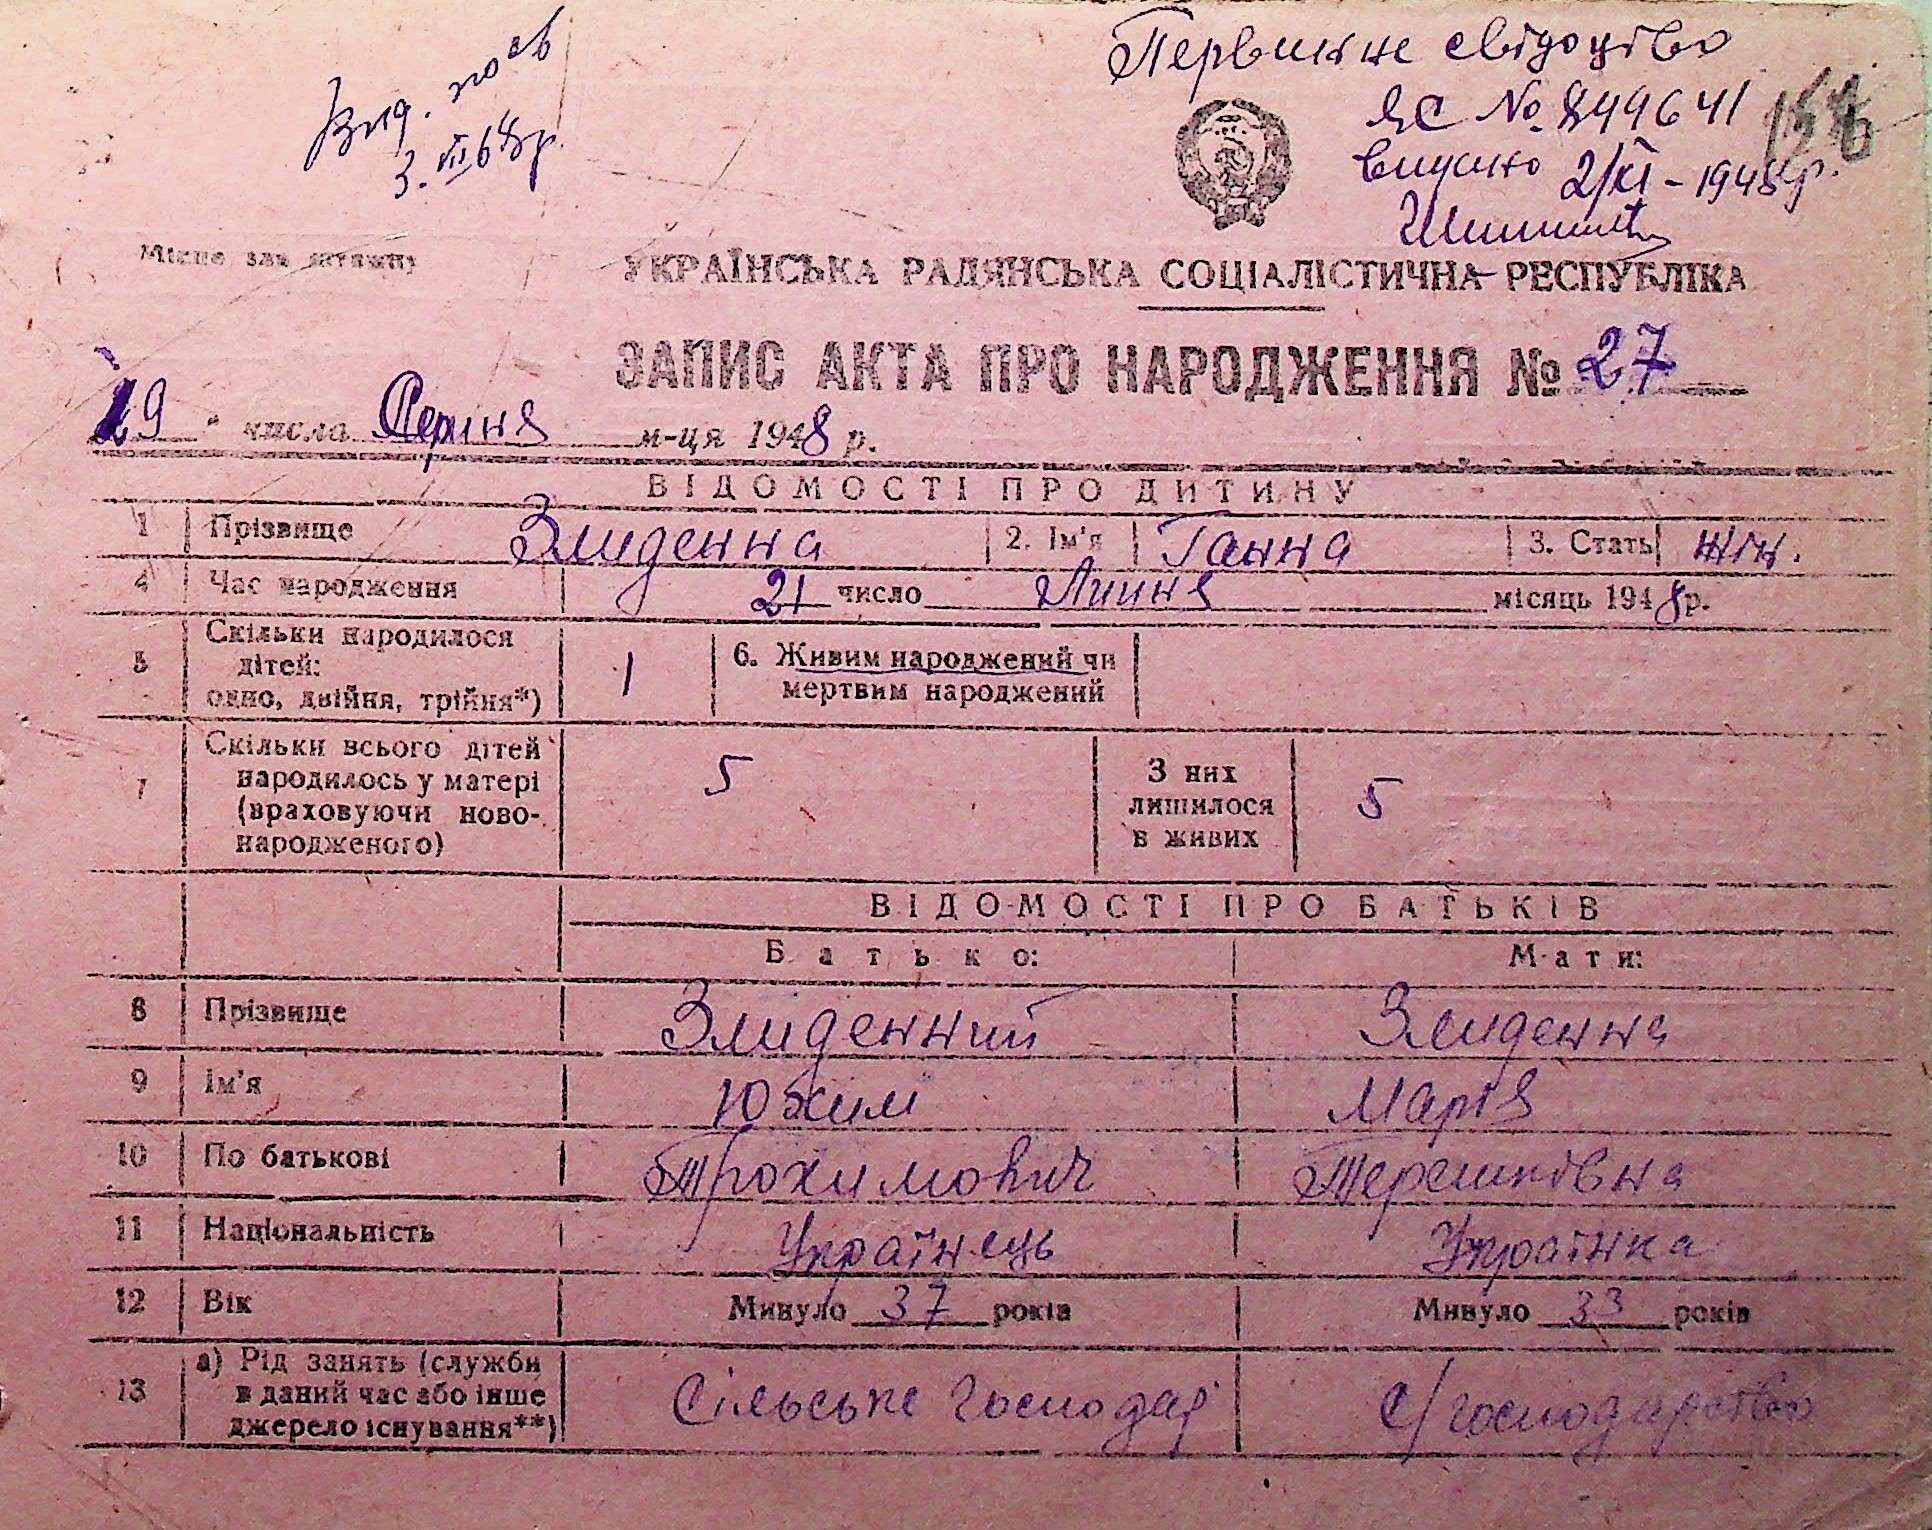 Первинне свідоцтво
ЯС № 849641
видано 2/XI - 1948 р.
Вид. пов
3. VII 68 р.
Місце для штампу
УКРАЇНСЬКА РАДЯНСЬКА СОЦІАЛІСТИЧНА РЕСПУБЛІКА
ЗАПИС АКТА ПРО НАРОДЖЕННЯ № 27
19 " числа Серпня м-ця 1948 р.
ВІДОМОСТІ ПРО ДИТИНУ
1 Прізвище Злиденна 2. Ім'я Ганна 3. Стать жін.
4 Час народження 21 число Липня місяць 1948 р.
5 Скільки народилося дітей: одно, двійня, трійня*) 1 6. Живим народжений чи мертвим народжений
7 Скільки всього дітей народилось у матері (враховуючи ново-народженого) 5 З них лишилося в живих 5
ВІДОМОСТІ ПРО БАТЬКІВ
Батько: Мати:
8 Прізвище Злиденний Злиденна
9 Ім'я Юхим Марія
10 По батькові Трохимович Терешківна
11 Національність Українець Українка
12 Вік Минуло 37 років Минуло 33 років
13 а) Рід занять (служби в даний час або інше джерело існування**) Сільське господар с/господарство